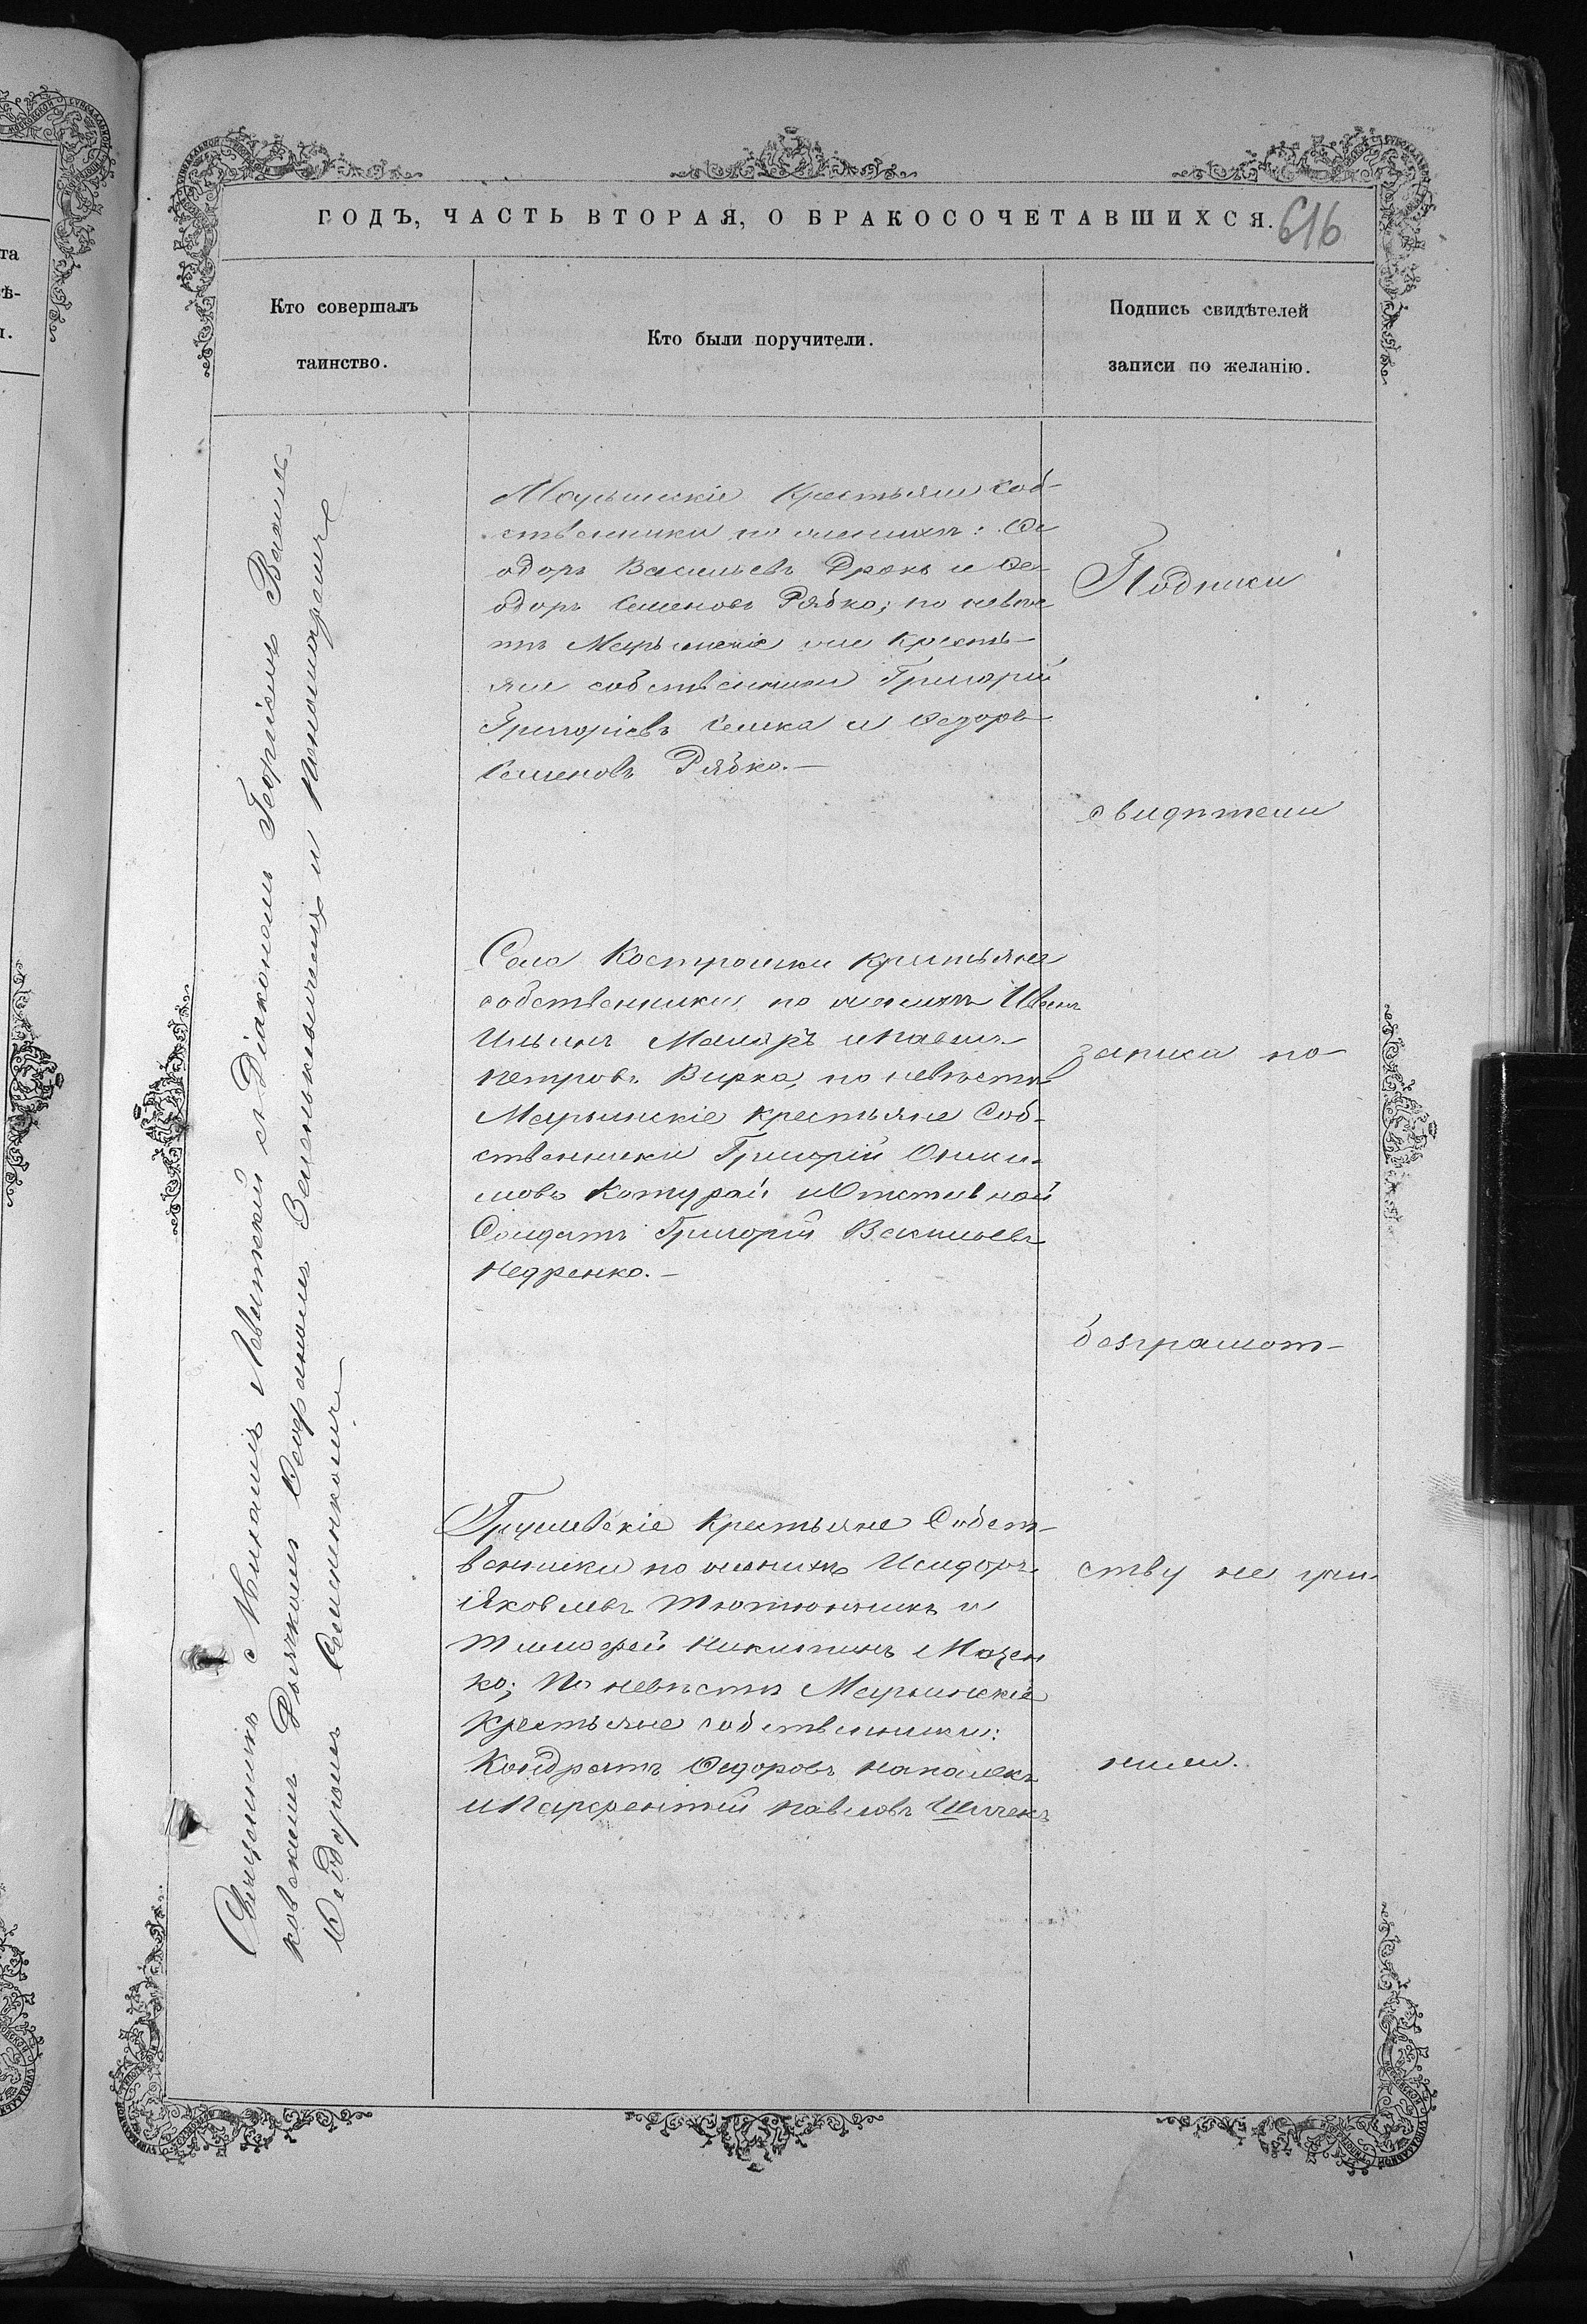 ГОДЪ, ЧАСТЬ ВТОРАЯ, О БРАКОСОЧЕТАВШИХСЯ.
616
Кто совершалъ
таинство.
Кто были поручители.
Подпись свидѣтелей
записи по желанію.
Священникъ Михаилъ Левитскій съ Діакономъ Георгіемъ Василь-
ковскимъ Дьячкомъ Стефаномъ Зенькевичемъ и Пономаремъ
Ѳеодоромъ
Марьинскіе Крестьяне соб-
ственники по женихѣ: Ѳе
одоръ Васильевъ Дракъ и Ѳе-
одоръ Семеновъ Рябко; по невѣс
тѣ Марьинскіе же Кресть-
яне собственники Григорій
Григоріевъ и Ѳедоръ
Семеновъ Рябко.—
Села Костромки крестьяне
собственники по женихѣ Иванъ
Ильинъ Маляръ и Павелъ
Петровъ Вирка, по невѣстѣ
Марьинскіе крестьяне Соб-
ственники Григорій Оники-
мовъ Котурай и Отставной
Солдатъ Григорій Васильевъ
Недренко.—
Грушевскіе Крестьяне Собст-
венники по женихѣ Исидоръ
Яковлевъ Тютюнникъ и
Тимофей Никитинъ Мазен
ко; По невѣстѣ Марьинскіе
Крестьяне собственники:
Кондратъ Ѳедоровъ
и Парфентій Павловъ
Подписи
свидѣтели
записи по
безграмот-
ству не учи-
нили.